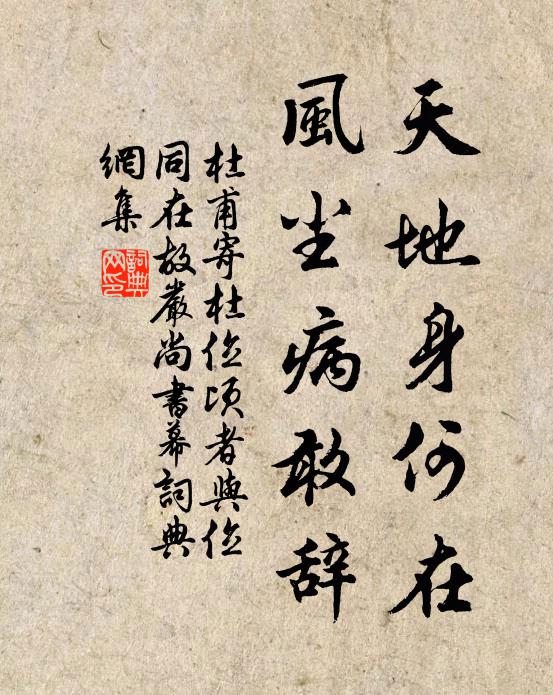 天地身何在
風尘病敢辞
杜甫寄杜位頃者與位
同在故嚴尚書幕詞典
網集
詞典网印